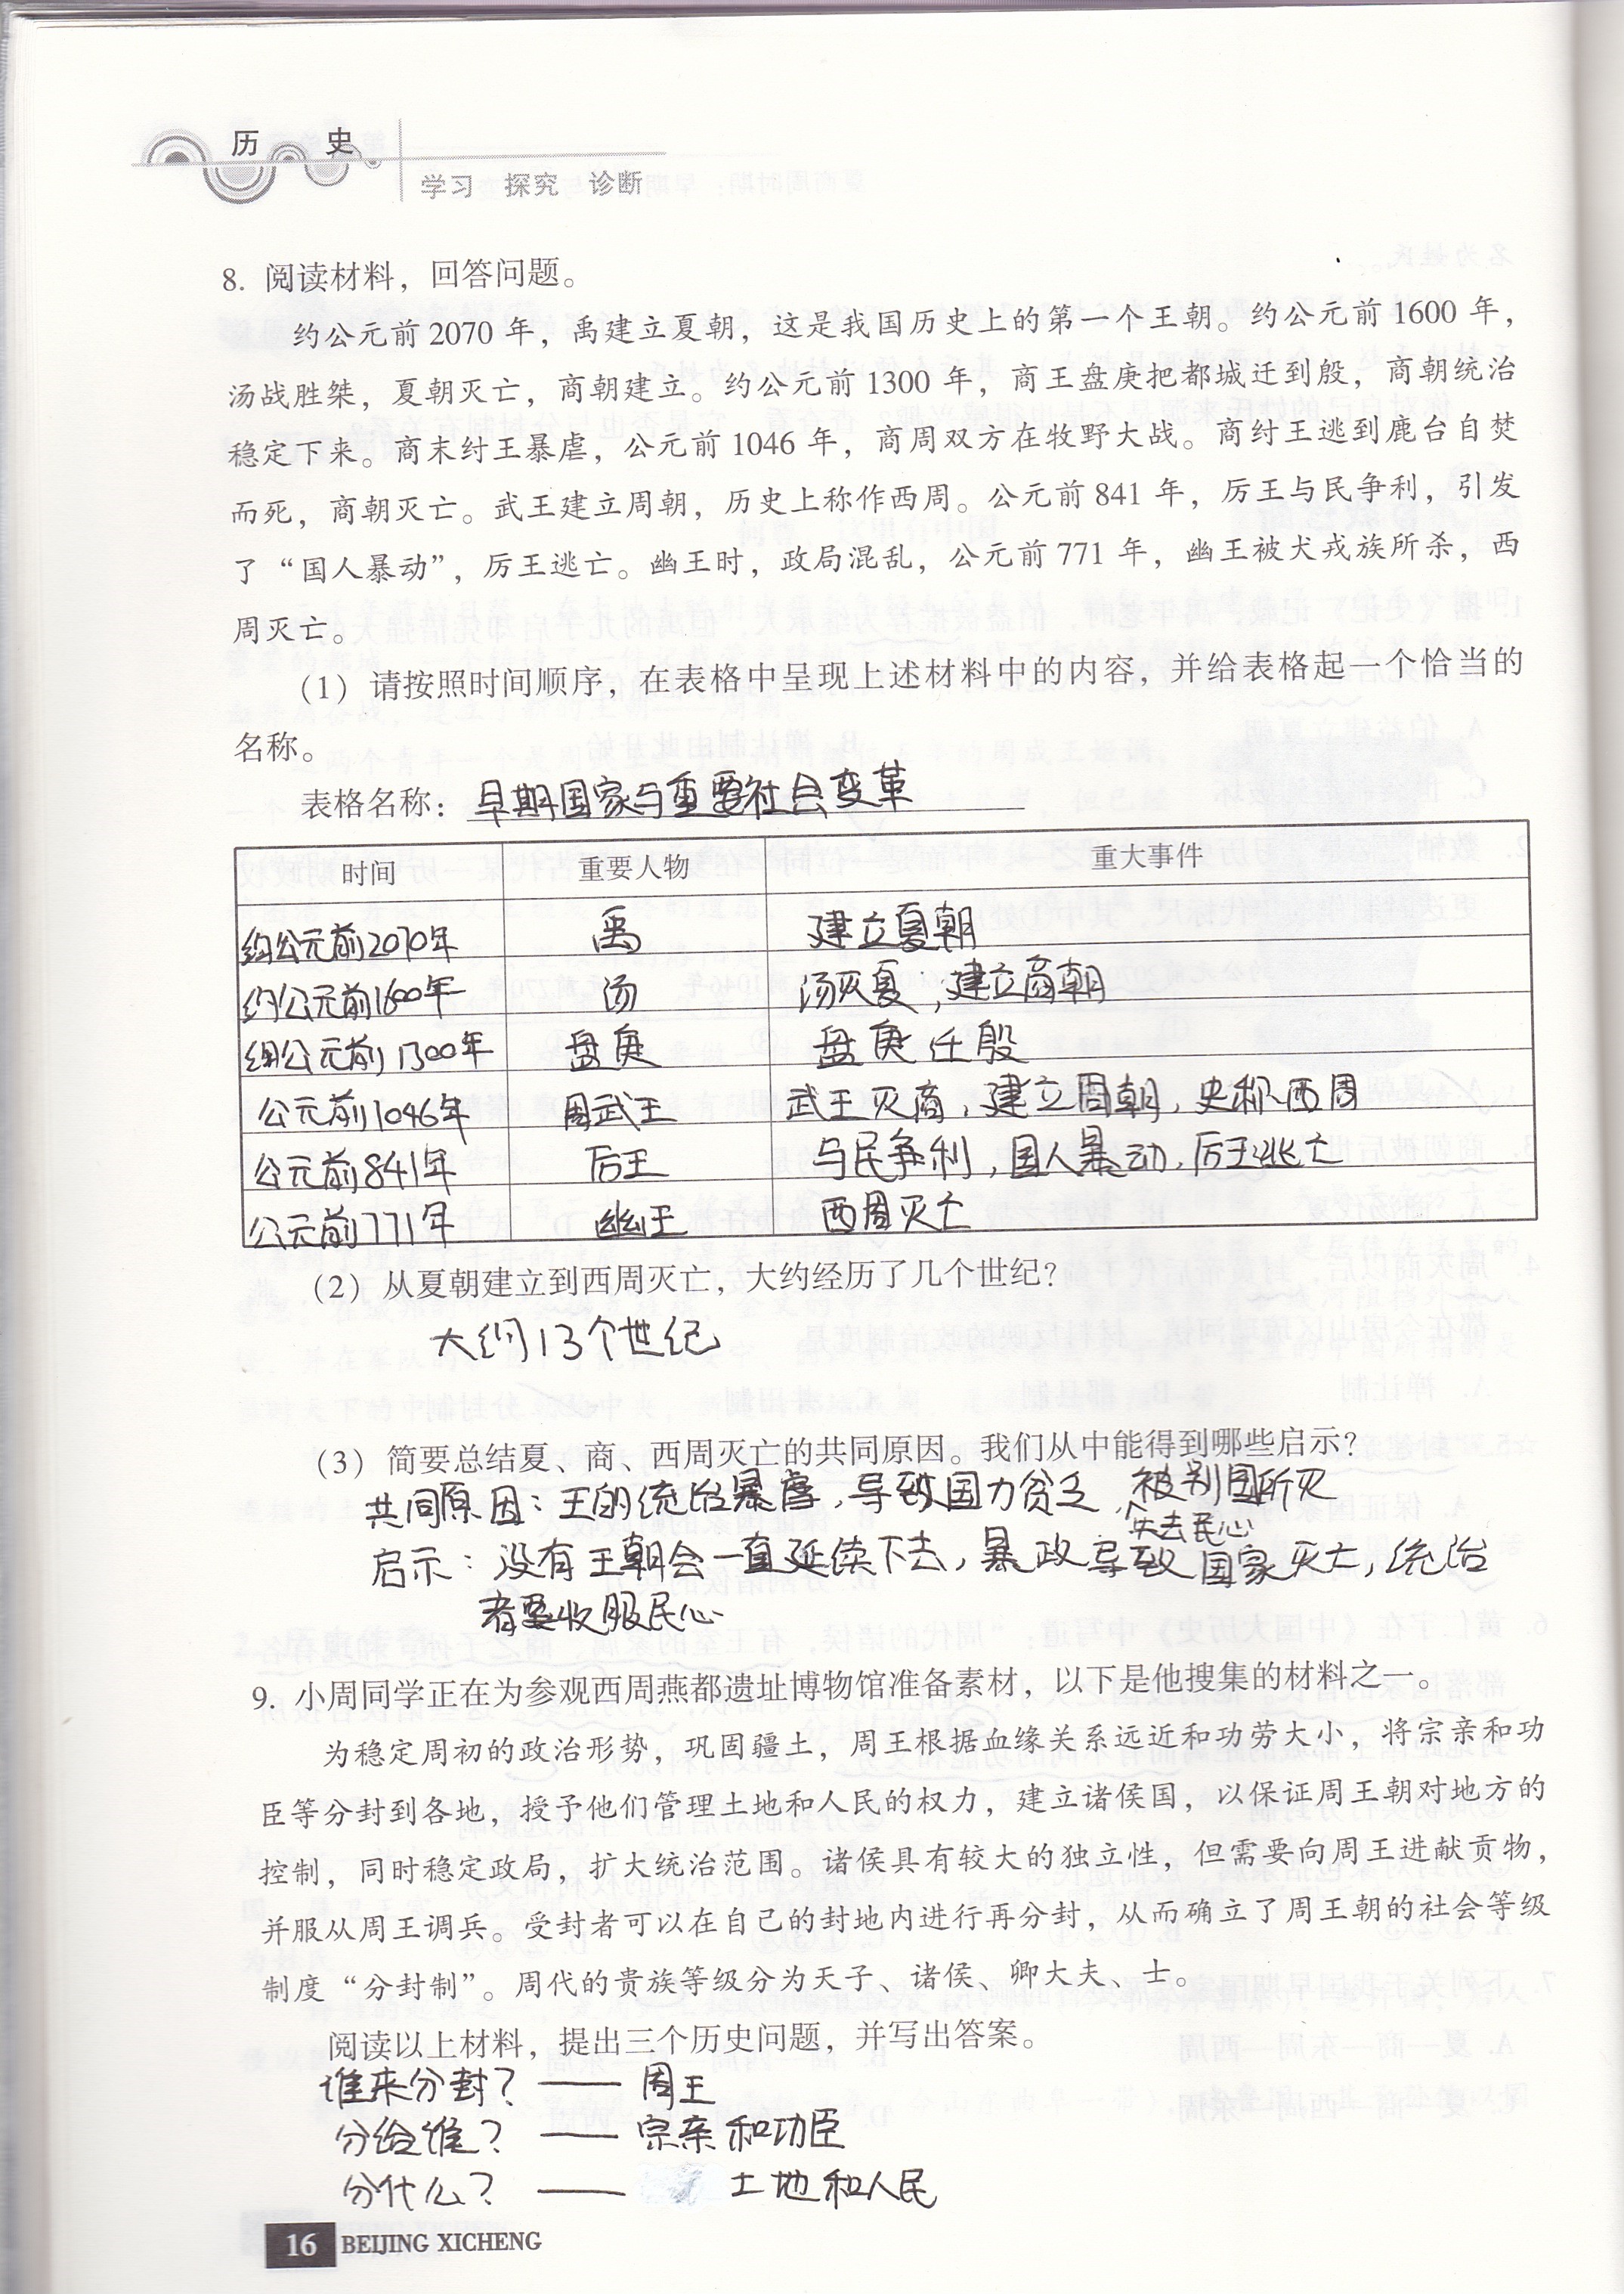 历 史
学习 探究 诊断
8. 阅读材料，回答问题。
约公元前 2070 年，禹建立夏朝，这是我国历史上的第一个王朝。约公元前 1600 年，
汤战胜桀，夏朝灭亡，商朝建立。约公元前 1300 年，商王盘庚把都城迁到殷，商朝统治
稳定下来。商末纣王暴虐，公元前 1046 年，商周双方在牧野大战。商纣王逃到鹿台自焚
而死，商朝灭亡。武王建立周朝，历史上称作西周。公元前 841 年，厉王与民争利，引发
了“国人暴动”，厉王逃亡。幽王时，政局混乱，公元前 771 年，幽王被犬戎族所杀，西
周灭亡。
（1）请按照时间顺序，在表格中呈现上述材料中的内容，并给表格起一个恰当的
名称。
表格名称：早期国家与重要社会变革
时间 重要人物 重大事件
约公元前2070年 禹 建立夏朝
约公元前1600年 汤 汤灭夏，建立商朝
约公元前1300年 盘庚 盘庚迁殷
公元前1046年 周武王 武王灭商，建立周朝，史称西周
公元前841年 厉王 与民争利，国人暴动，厉王逃亡
公元前771年 幽王 西周灭亡
（2）从夏朝建立到西周灭亡，大约经历了几个世纪？
大约13个世纪
（3）简要总结夏、商、西周灭亡的共同原因。我们从中能得到哪些启示？
共同原因：王的统治暴虐，导致国力贫乏，被别国所灭
失去民心
启示：没有王朝会一直延续下去，暴政导致国家灭亡，统治
者要收服民心
9. 小周同学正在为参观西周燕都遗址博物馆准备素材，以下是他搜集的材料之一。
为稳定周初的政治形势，巩固疆土，周王根据血缘关系远近和功劳大小，将宗亲和功
臣等分封到各地，授予他们管理土地和人民的权力，建立诸侯国，以保证周王朝对地方的
控制，同时稳定政局，扩大统治范围。诸侯具有较大的独立性，但需要向周王进献贡物，
并服从周王调兵。受封者可以在自己的封地内进行再分封，从而确立了周王朝的社会等级
制度“分封制”。周代的贵族等级分为天子、诸侯、卿大夫、士。
阅读以上材料，提出三个历史问题，并写出答案。
谁来分封？—— 周王
分给谁？—— 宗亲和功臣
分什么？—— 土地和人民
16 BEIJING XICHENG